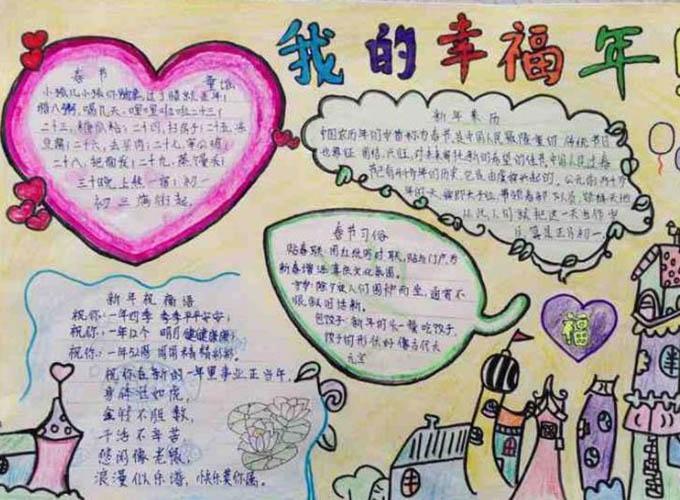 我的幸福年!
春节
童谣
小孩儿小孩你别馋,过了腊八就是年;
腊八粥,喝几天,哩哩啦啦二十三;
二十三,糖瓜粘;二十四,扫房子;二十五,冻
豆腐;二十六,去买肉;二十七,宰公鸡;
二十八,把面发;二十九,蒸馒头;
三十晚上熬一宿;初一
初二满街起,
新年来历
中国农历年的岁首称为春节,是中国人民最隆重的传统节日
也象征团结、兴旺,对未来寄托新的希望的佳节。中国人民过春
节已有4千多年的历史,它是由虞舜兴起的。公元前两千多
年的一天,舜即天子位,带领着部下人员,祭拜天地
从此,人们就把这一天当作岁
首,算是正月初一。
春节习俗
贴春联:用红纸写对联,贴与门户为
新春增添喜庆文化氛围。
守岁:除夕夜人们围炉而坐,通宵不
眠,叙旧话新。
包饺子:新年的头一餐吃饺子,
饺子的形状好像古代大
元宝
新年祝福语
祝你:一年四季 季季平平安安;
祝你:一年12个 明月健健康康;
祝你:一年52周 周周精精彩彩。
祝你在新的一年里事业正当午,
身体壮如虎,
金钱不胜数,
干活不辛苦
悠闲像老鼠,
浪漫似乐谱,快乐莫你属。
福